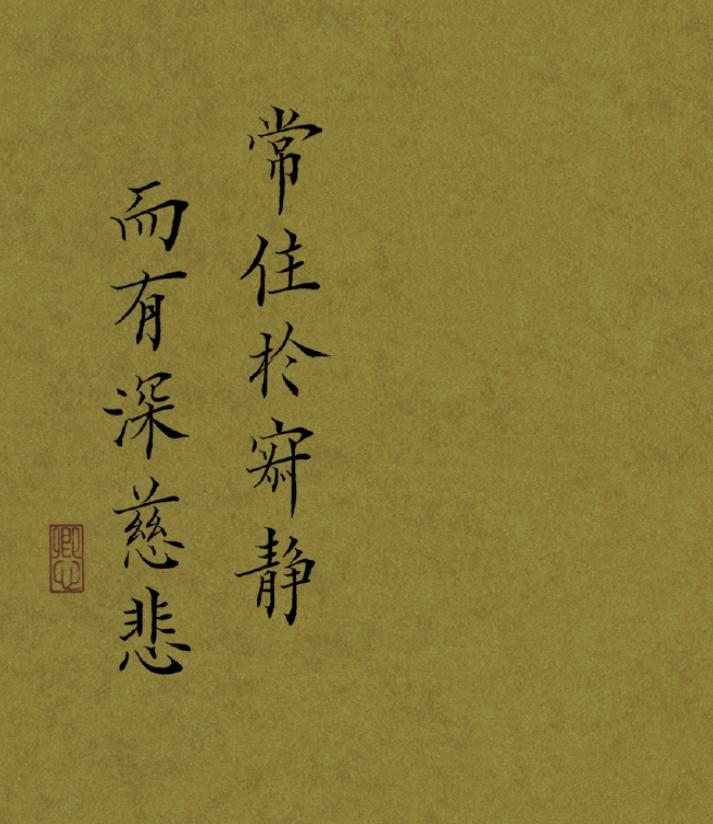 常住於寂静
而有深慈悲
卿心